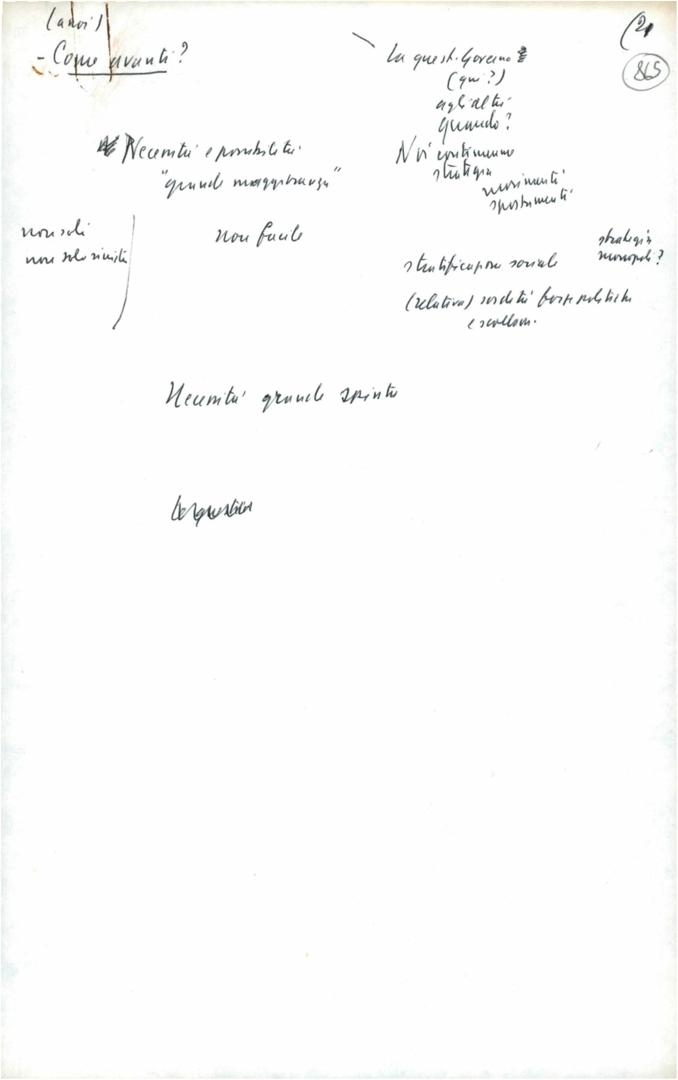 (a noi)
- Come avanti?
(2
865
La quest. Governo
(qui?)
agli altri
quando?
Necessità e possibilità
"grande maggioranza"
Noi continuiamo
strategia
movimenti
spostamenti
non soli
non solo
non facile
strategia
monopoli?
stratificazione sociale
(relativa) sordità forze politiche
e
Necessità grande spinta